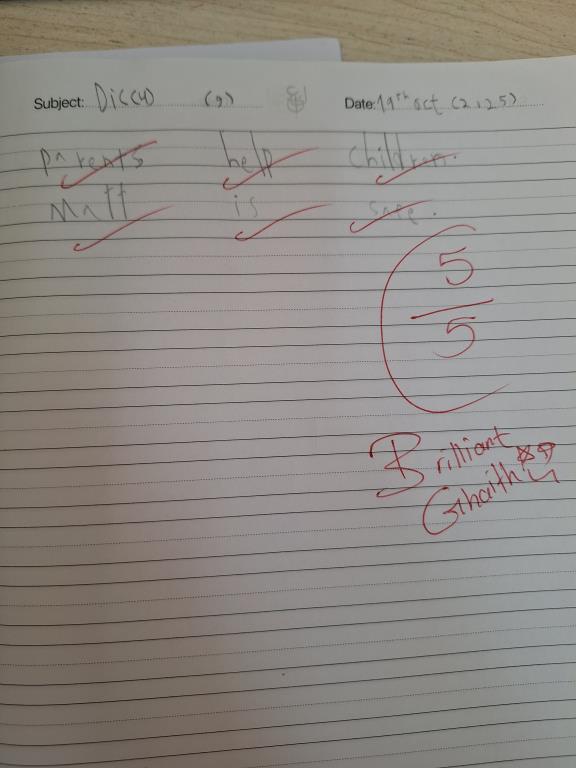 Subject: Dic(4) (9) Date: 19th oct (2025)
Parents help children.
Matt is safe.
5
5
Brilliant
Ghaith